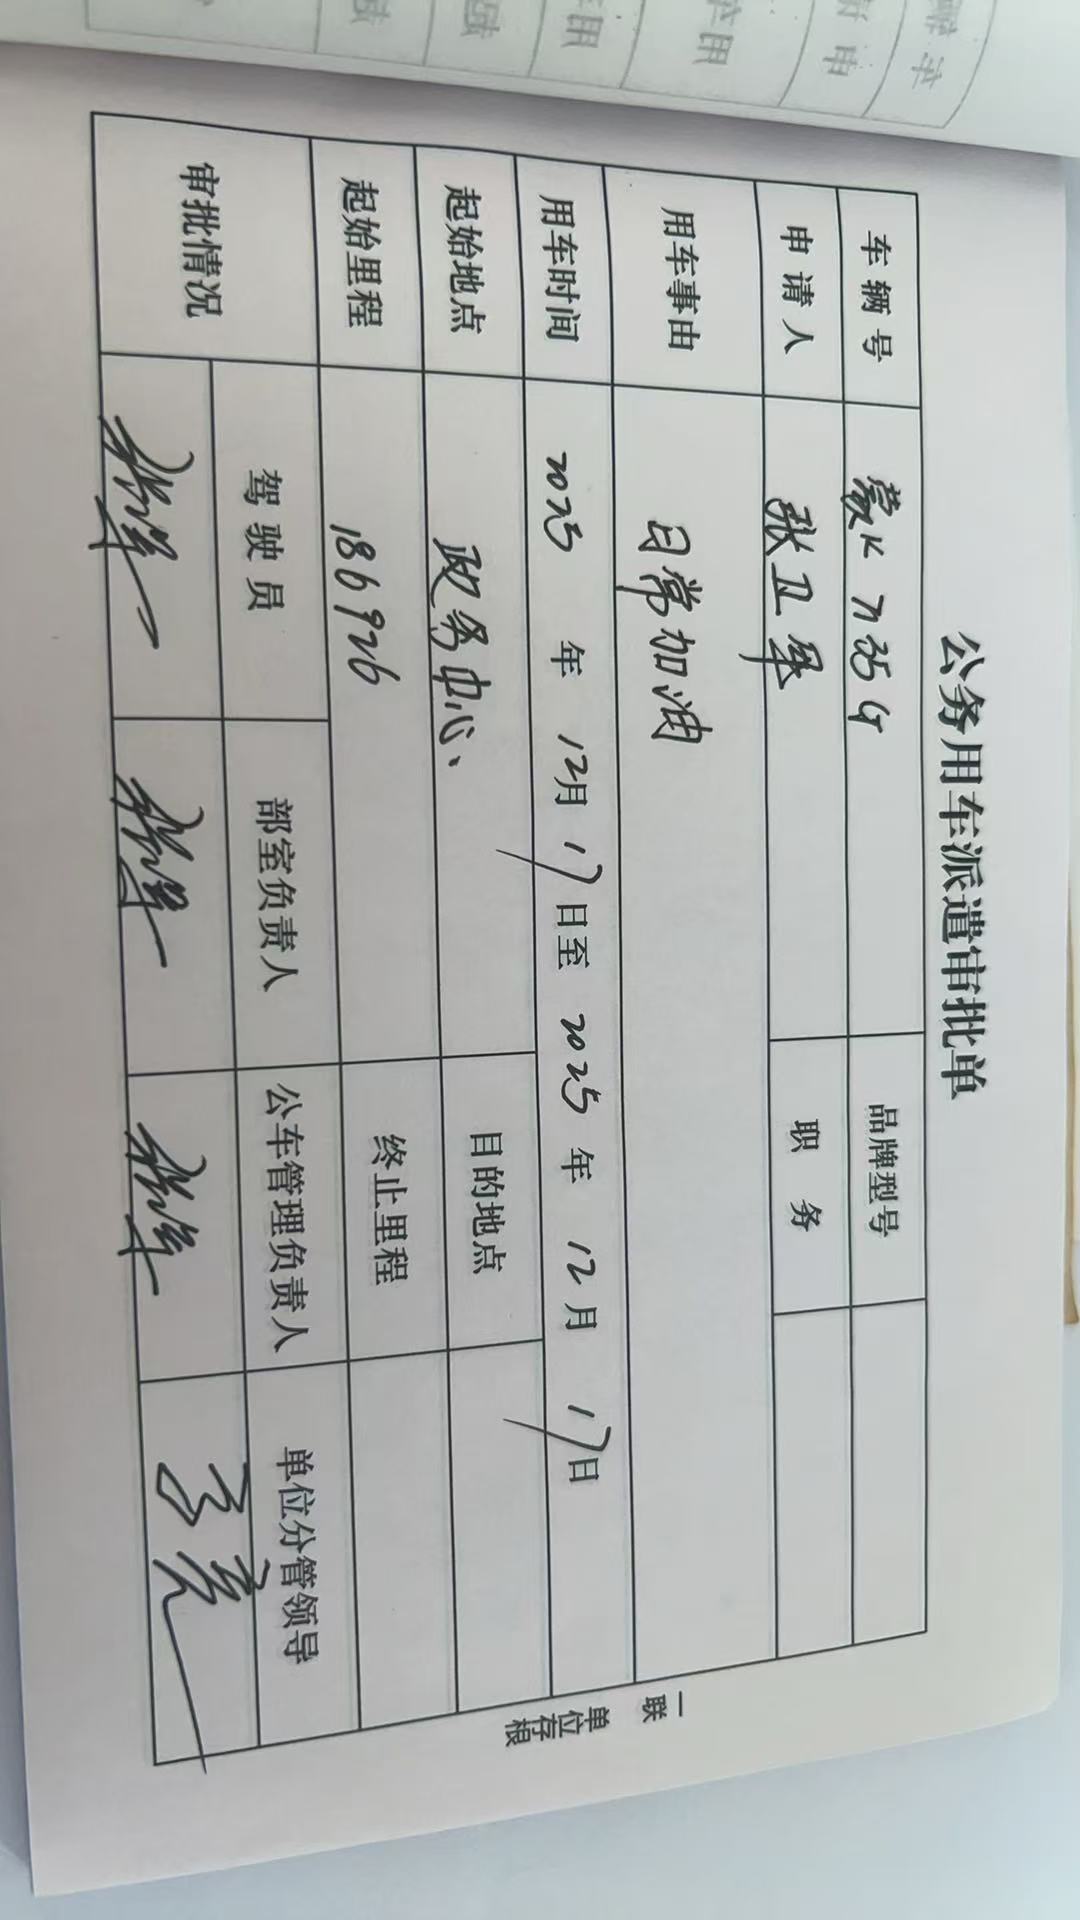 公务用车派遣审批单
车辆号 品牌型号
申请人 张卫军 职务
用车事由 日常加油
用车时间 2025 年 12月 17日至 2025 年 12月 17日
起始地点 政务中心、 目的地点
起始里程 186926 终止里程
审批情况 驾驶员 部室负责人 公车管理负责人 单位分管领导
一联 单位存根